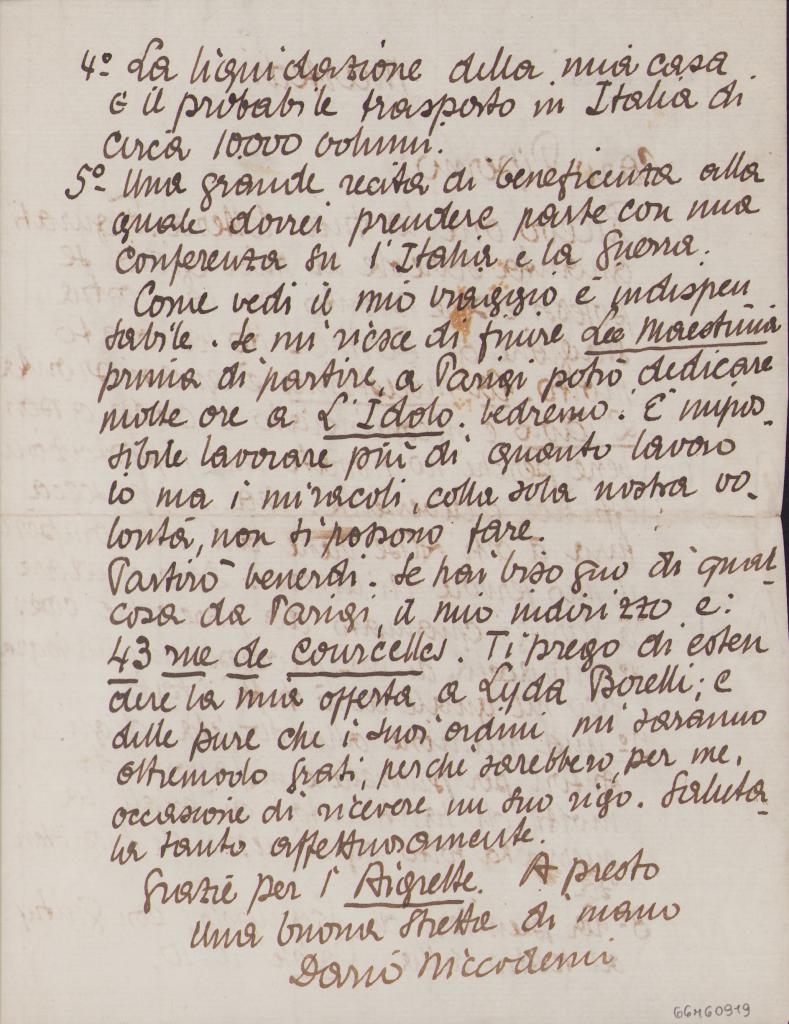 4º La liquidazione della mia casa
e il probabile trasporto in Italia di
circa 10000 volumi.
5º Una grande recita di beneficienza alla
quale dovrei prendere parte con una
conferenza su l'Italia e la guerra.
Come vedi il mio viaggio è indispen
sabile. Se mi riesce di finire La Maestrina
prima di partire, a Parigi potrò dedicare
molte ore a L'Idolo. Vedremo. È impos-
sibile lavorare più di quanto lavoro
io ma i miracoli, colla sola nostra vo-
lontà, non si possono fare.
Partirò venerdì. Se hai bisogno di qual-
cosa da Parigi, il mio indirizzo è:
43 rue de Courcelles. Ti prego di esten
dere la mia offerta a Lyda Borelli; e
dille pure che i suoi ordini mi saranno
oltremodo grati, perchè sarebbero, per me,
occasione di ricevere un suo rigo. Saluta-
la tanto affettuosamente.
Grazie per l'Aigrette. A presto
Una buona stretta di mano
Dario Niccodemi
66460919